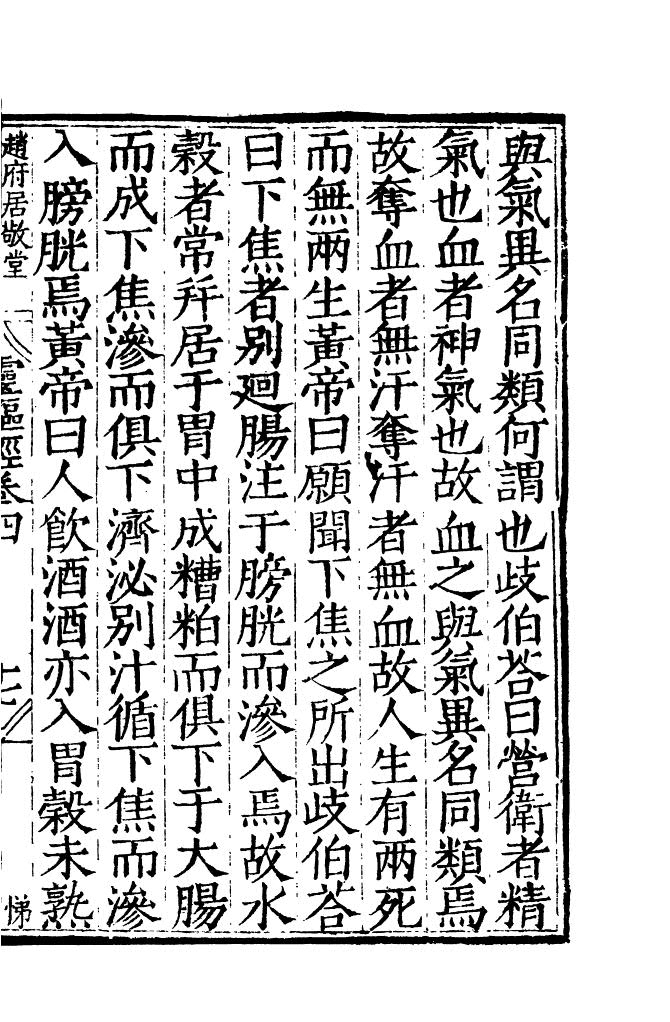 與氣異名同類何謂也歧伯荅曰營衛者精
氣也血者神氣也故血之與氣異名同類焉
故奪血者無汗奪汗者無血故人生有兩死
而無兩生黃帝曰願聞下焦之所出歧伯荅
曰下焦者別廻腸注于膀胱而滲入焉故水
穀者常并居于胃中成糟粕而俱下于大腸
而成下焦滲而俱下濟泌別汁循下焦而滲
入膀胱焉黃帝曰人飲酒酒亦入胃穀未熟
趙府居敬堂 靈樞經卷四 七 悌